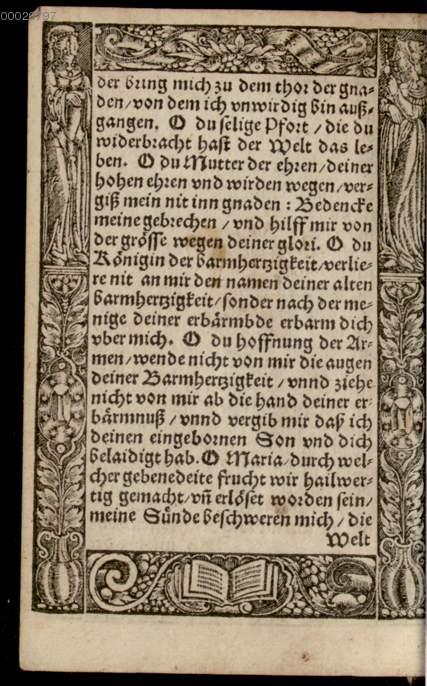 00029397
der bring mich zu dem thor der gna-
den/von dem ich vnwirdig bin auß-
gangen. O du selige Pfort / die du
widerbracht hast der Welt das le-
ben. O du Mutter der ehren/deiner
hohen ehren vnd wirden wegen/ver-
giß mein nit inn gnaden : Bedencke
meine gebrechen / vnd hilff mir von
der grösse wegen deiner glori. O du
Königin der barmhertzigkeit/verlie-
re nit an mir den namen deiner alten
barmhertzigkeit/sonder nach der me-
nige deiner erbärmbde erbarm dich
vber mich. O du hoffnung der Ar-
men/wende nicht von mir die augen
deiner Barmhertzigkeit / vnnd ziehe
nicht von mir ab die hand deiner er-
bärmnuß / vnnd vergib mir daß ich
deinen eingebornen Son vnd dich
belaidigt hab. O Maria/durch wel-
cher gebenedeite frucht wir hailwer-
tig gemacht/vñ erlöset worden sein/
meine Sünde beschweren mich / die
Welt